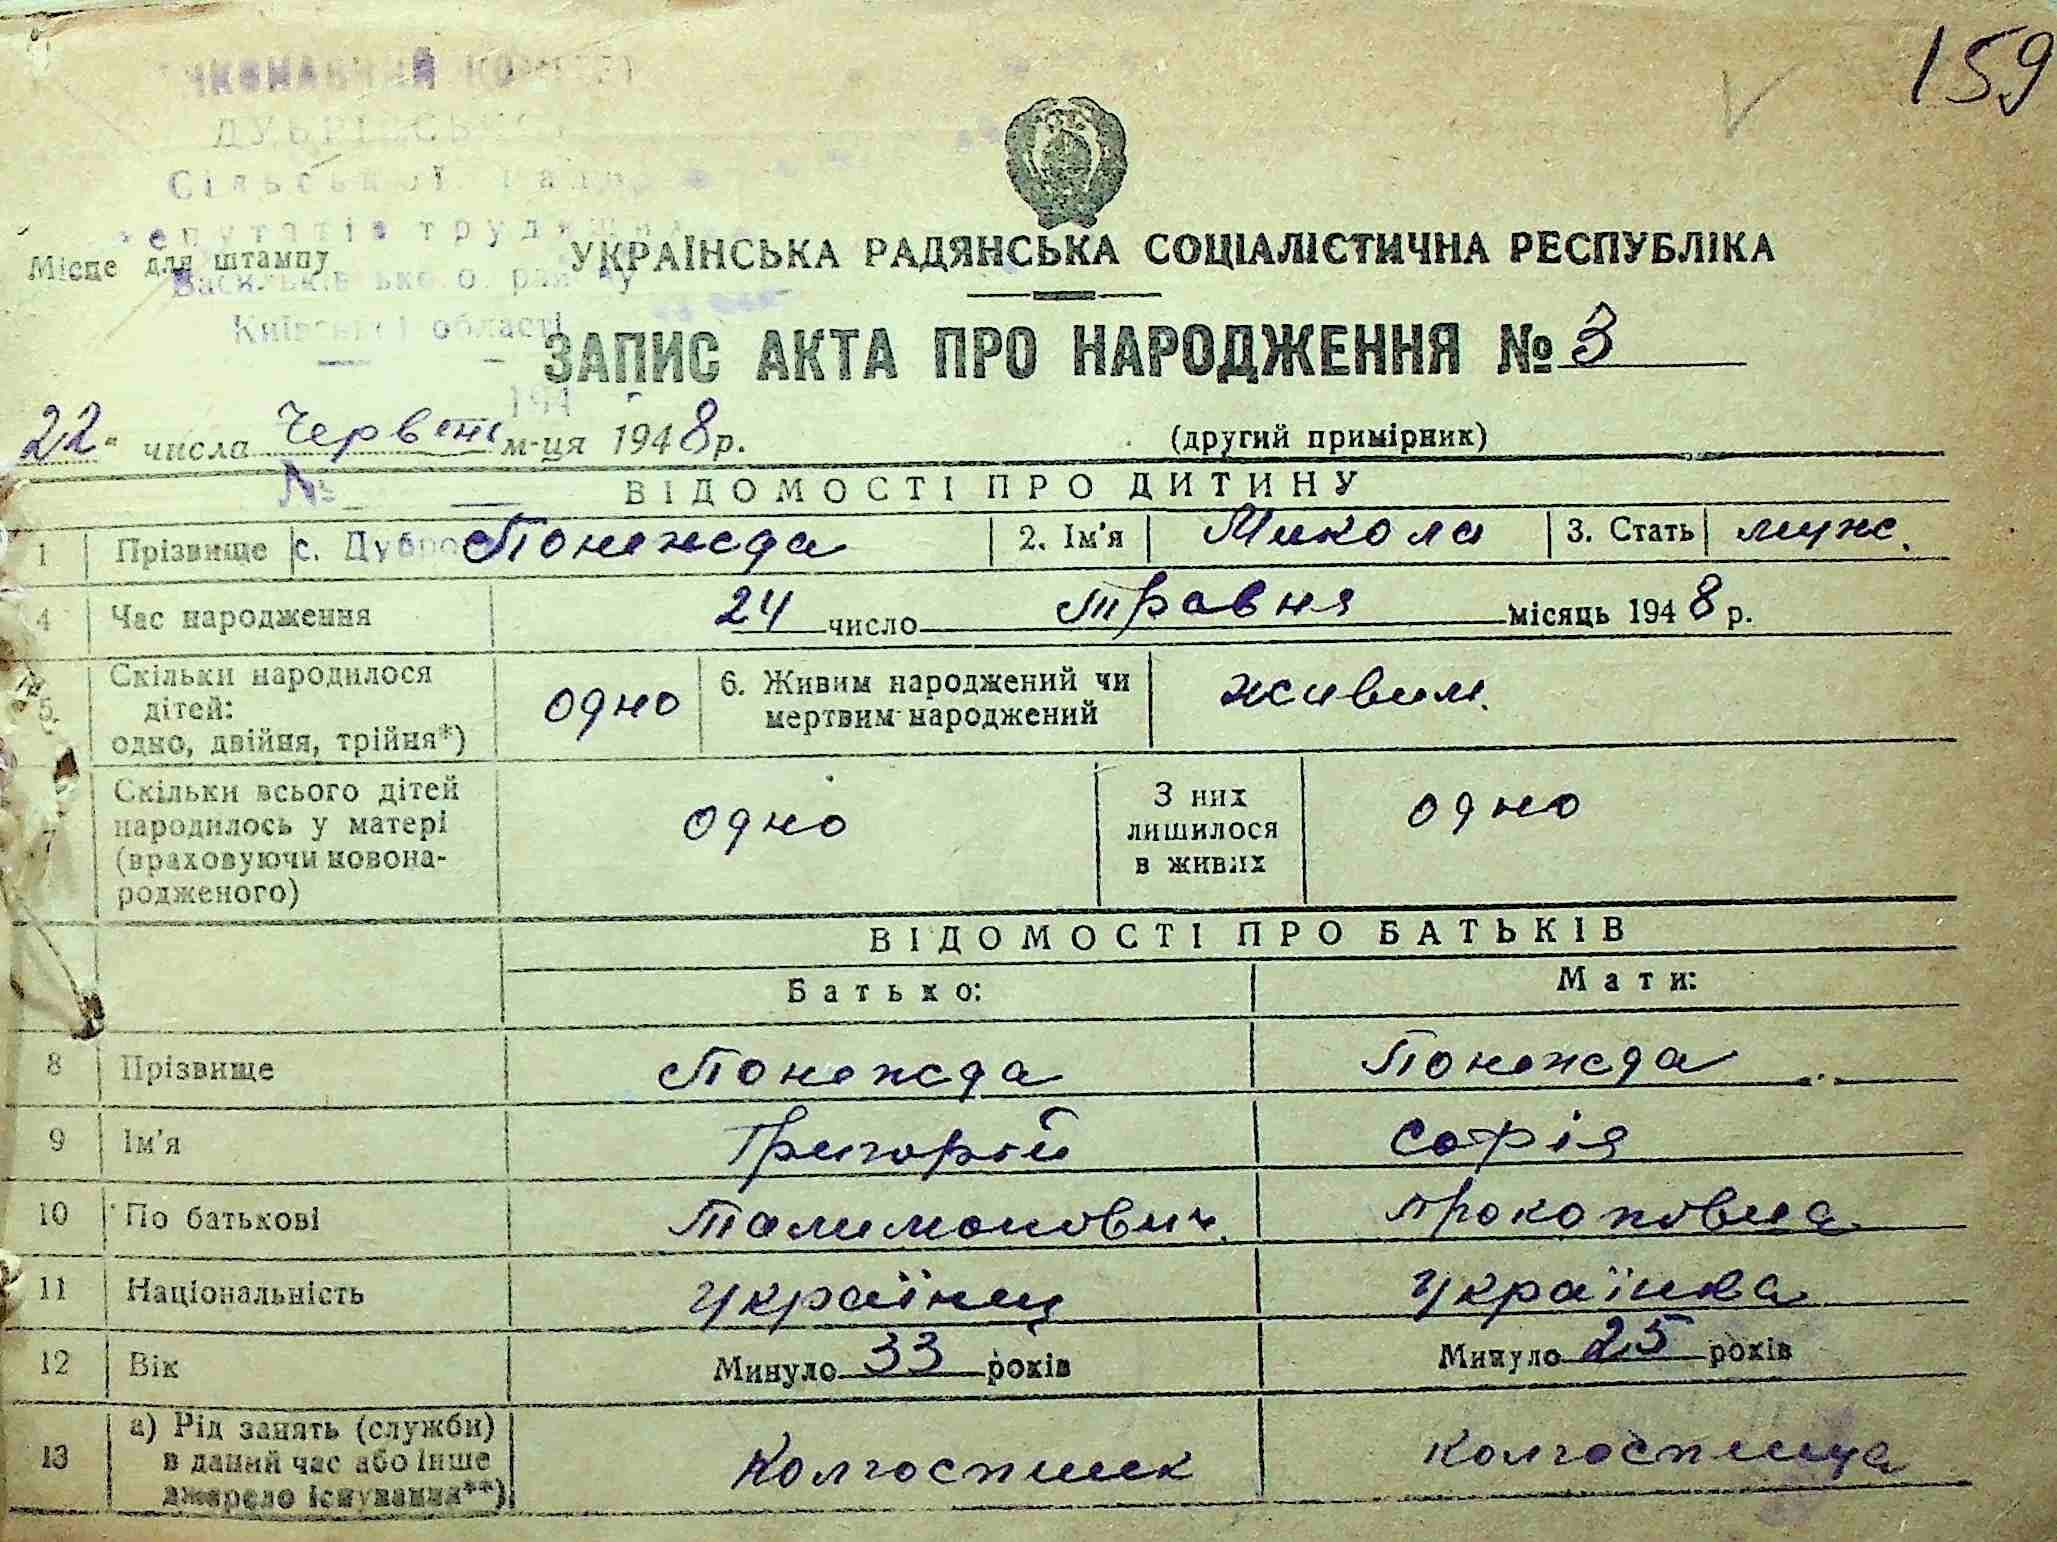 159
Сільської
депутатів трудящих
Місце для штампу
Васильківського району
Київської області
УКРАЇНСЬКА РАДЯНСЬКА СОЦІАЛІСТИЧНА РЕСПУБЛІКА
ЗАПИС АКТА ПРО НАРОДЖЕННЯ № 3
194
22" числа Червень м-ця 1948 р.
(другий примірник)
№
ВІДОМОСТІ ПРО ДИТИНУ
1 Прізвище с. Понежда 2. Ім'я Микола 3. Стать муж.
4 Час народження 24 число травня місяць 1948 р.
5. Скільки народилося дітей: одно, двійня, трійня*) одно 6. Живим народжений чи мертвим народжений живим.
7 Скільки всього дітей народилось у матері (враховуючи новонародженого) одно З них лишилося в живих одно
ВІДОМОСТІ ПРО БАТЬКІВ
Батько: Мати:
8 Прізвище Понежда Понежда
9 Ім'я Григорій Софія
10 По батькові Талимонович Прокоповна
11 Національність українец українка
12 Вік Минуло 33 років Минуло 25 років
13 а) Рід занять (служби) в даний час або інше джерело існування**) Колгоспник колгоспница